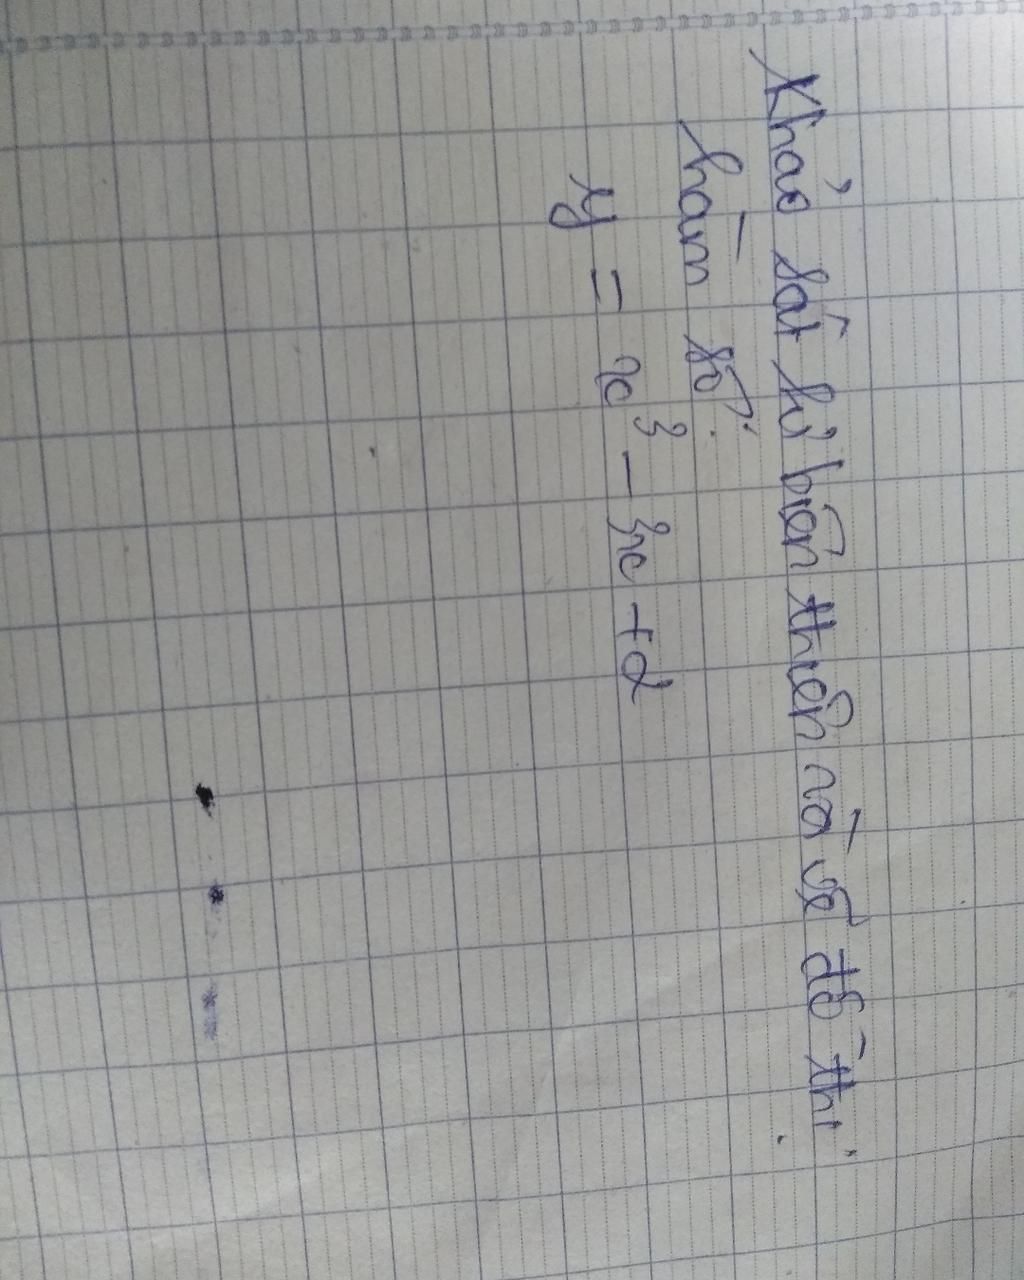 Khảo sát sự biến thiên và vẽ đồ thị
hàm số:
y = x³ - 3x + 2